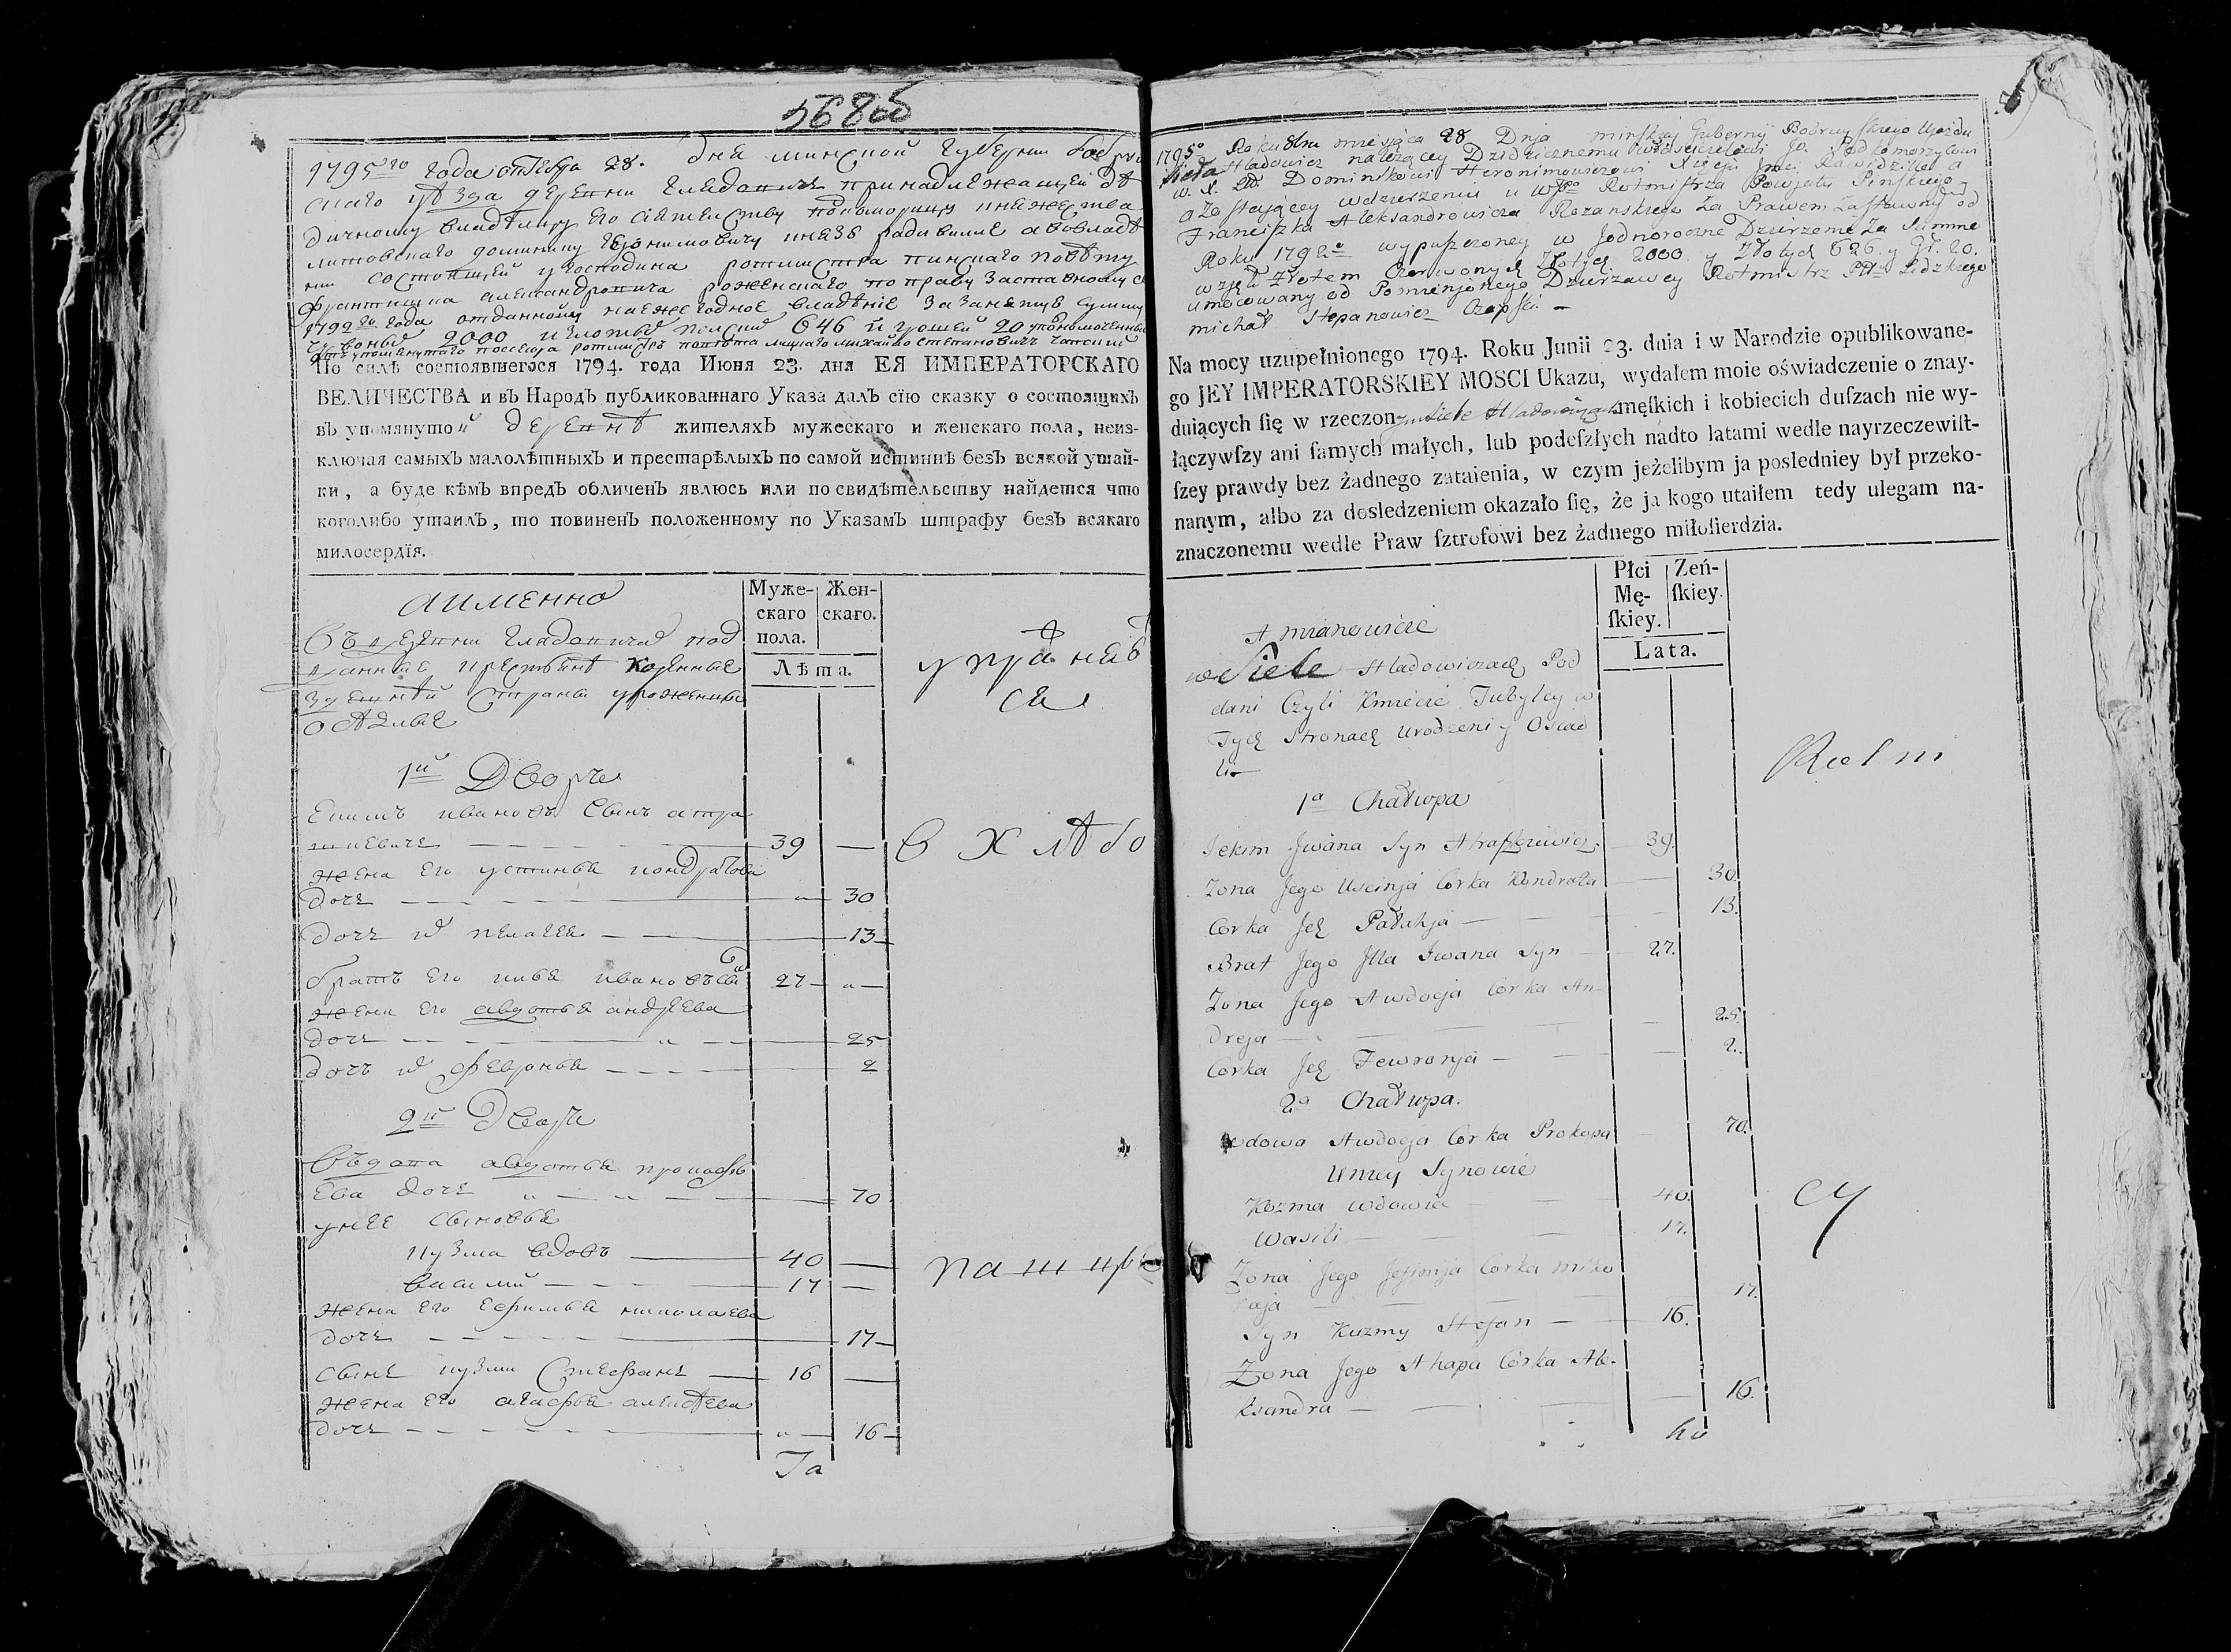 568об
1795го года октября 28. дня минской губернии бобруй
скаго уезда деревни Гладович принадлежащей де
дичному владелцу его сиятелству подкоморию княжества
литовского доминику Иеронимовичу князь радивилле а во владе
нии состоящей у господина ротмистра пинского повету
франтишка александровича роженскаго по праву заставному с
1792го года отданному на ежегодное владение за занятую сумму
червоных 2000 и злотых полских 646 и грошей 20 уполномоченный
отъ упомянутаго посесора ротмистръ михайло степановичъ чапский
По силѣ состоявшегося 1794. года Июня 23. дня ЕЯ ИМПЕРАТОРСКАГО
ВЕЛИЧЕСТВА и въ Народъ публикованнаго Указа далъ сїю сказку о состоящихъ
въ упомянутой деревнѣ жителяхъ мужескаго и женскаго пола, неиз-
ключая самыхъ малолѣтныхъ и престарѣлыхъ по самой истиннѣ безъ всякой утай-
ки, а буде кѣмъ впредъ обличенъ явлюсь или по свидѣтельству найдется что
коголибо утаилъ, то повиненъ положенному по Указамъ штрафу безъ всякаго
милосердїя.
а именно
Муже-
скаго
пола.
Жен-
скаго.
Лѣта.
Въ деревни Гладовичах под
данные крестьяне коренные
здешнѣй страны уроженцы
оселые
1й Дворъ
Екимъ ивановъ сынъ атра
шкевичь 39
жена его устинья кондратова
дочь 30
дочь их пелагея 13
братъ его илья ивановъ сын 27
жена его авдотья андреева
дочь 25
дочь их февронья 2
2й Дворъ
вдова авдотья прокофь
ева дочь 70
у нее сыновья
кузма вдовъ 40
василий 17
жена его ефимья николаева
дочь 17
сынъ кузмы Стефанъ 16
жена его агафья
дочь 16
1795o Roku 8bra miesiąca 28 Dnia minskiej Gubernij Bobruyskiego Ujezdu
Sieła Hladowicz należącey Dziedzicznemu Jo. Podkomorzylowi
w. X. Lit. Dominikowi Heronimowiczowi Xięciu Jmci Radziwille a
a zostającey w dzierzeniu u Wgo Rotmistrza Powjatu Pinskiego
Franciszka Aleksandrowicza Rożanskiego Za Prawem Zastawnym od
Roku 1792o wypuszczoney w Jednoroczne Dzierzenie Za Summe
wziętą Złotem Czerwonych Złotych 2000 y Złotych 626 y Gr. 20.
umocowany od Pomienionego Dzierzawcy Rotmistrz Ptu Lidzkiego
michał Stepanowicz Czapski. –
Na mocy uzupełnionego 1794. Roku Junii 23. dnia i w Narodzie opublikowane-
go JEY IMPERATORSKIEY MOSCI Ukazu, wydałem moie oświadczenie o znay-
duiących ſię w rzeczonym Siele Hladowiczach męſkich i kobiecich duſzach nie wy-
łączywſzy ani ſamych małych, lub podeſzłych nadto latami wedle nayrzeczewiſt-
ſzey prawdy bez żadnego zataienia, w czym jeżelibym ja posledniey był przeko-
nanym, albo za dosledzeniem okazało ſię, że ja kogo utaiłem tedy ulegam na-
znaczonemu wedle Praw ſztrofowi bez żadnego miłoſierdzia.
Płci
Mę-
ſkiey.
Zeń-
ſkiey.
Lata.
A mianowicie
w Siele Hladowiczach Pod
dani Czyli Kmiecie Tubylcy w
Tych Stronach Urodzeni y Osiad
li
1a Chałupa
Jekim Jwana Syn Atraszkiewicz 39.
Zona Jego Uscinja Corka Kondrata 30.
Corka Jch Pałahja 13.
Brat Jego Jlla Iwana Syn 27.
Zona Jego Awdocja Corka An-
dreja 25.
Corka Jch Fewronja 2.
2a Chałupa.
wdowa Awdocja Corka Prokopa 70.
U niey Synowie
Kozma wdowiec 40.
Wasili 17.
Zona Jego Jefimja Corka miko
łaja 17.
Syn Kuzmy Stefan 16.
Zona Jego Ahapa Corka Ale-
ksandra 16.